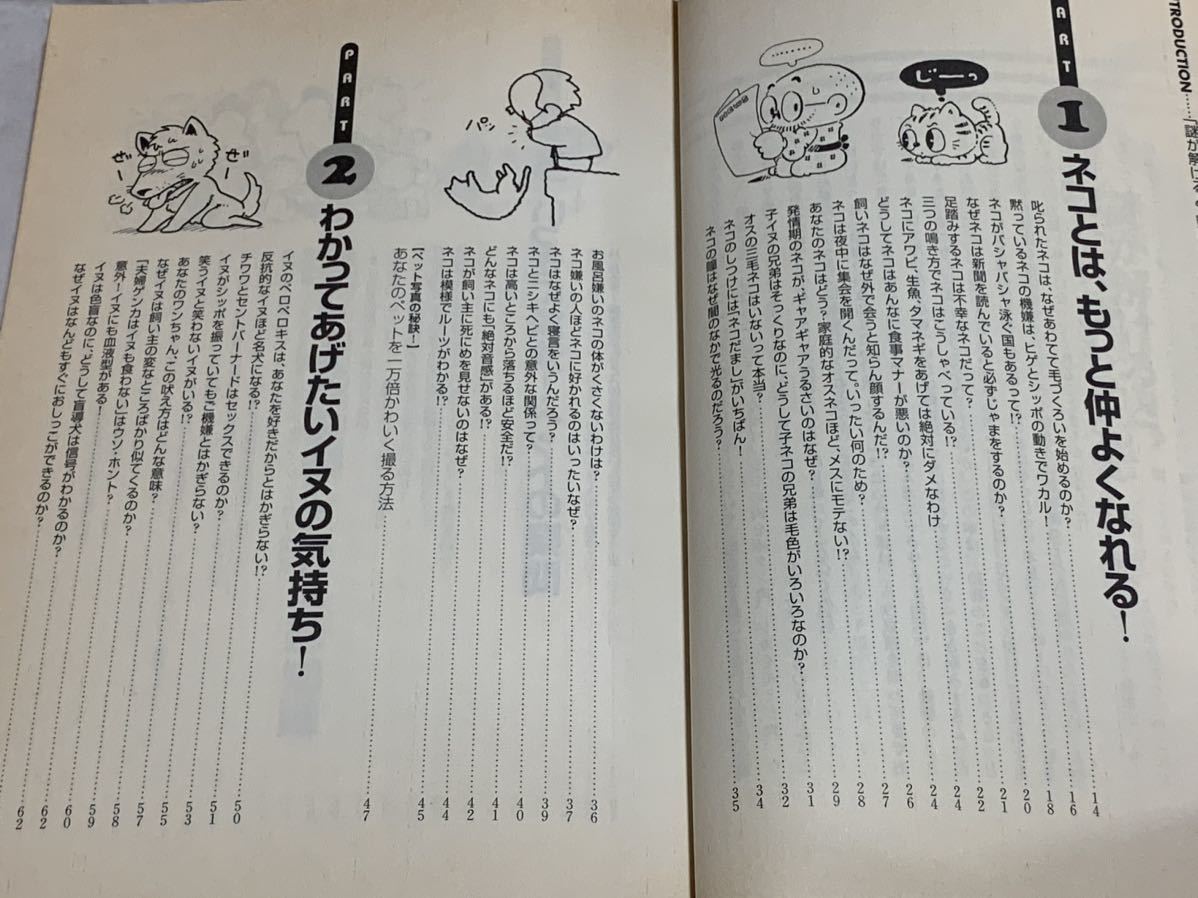 TRODUCTION……「謎が解ける
ART 1 ネコとは、もっと仲よくなれる!
………
じーっ
叱られたネコは、なぜあわてて毛づくろいを始めるのか?……14
黙っているネコの機嫌は、ヒゲとシッポの動きでワカル!……16
ネコがバシャバシャ泳ぐ国もあるって!?……18
なぜネコは新聞を読んでいると必ずじゃまをするのか?……20
足踏みするネコは不幸なネコだって?……21
三つの鳴き方でネコはこうしゃべっている!?……22
ネコにアワビ、生魚、タマネギをあげては絶対にダメなわけ……24
どうしてネコはあんなに食事マナーが悪いのか?……24
飼いネコはなぜ外で会うと知らん顔するんだ!?……26
ネコは夜中に集会を開くんだって。いったい何のため?……27
あなたのネコはどう?家庭的なオスネコほど、メスにモテない!?……28
発情期のネコが、ギャアギャアうるさいのはなぜ?……29
子イヌの兄弟はそっくりなのに、どうして子ネコの兄弟は毛色がいろいろなのか?……31
オスの三毛ネコはいないって本当?……32
ネコのしつけには「ネコだまし」がいちばん!……34
ネコの瞳はなぜ闇のなかで光るのだろう?……35
パン
お風呂嫌いのネコの体がくさくないわけは?……36
ネコ嫌いの人ほどネコに好かれるのはいったいなぜ?……37
ネコはなぜよく寝言をいうんだろう?……39
ネコとニシキヘビとの意外な関係って?……40
ネコは高いところから落ちるほど安全だ!?……41
どんなネコにも「絶対音感」がある!?……42
ネコが飼い主に死にめを見せないのはなぜ?……44
ネコは模様でルーツがわかる!?……45
[ペット写真の秘訣ー]
あなたのペットを一万倍かわいく撮る方法……47
PART 2 わかってあげたいイヌの気持ち!
ぜー
ぜー
イヌのペロペロキスは、あなたを好きだからとはかぎらない!?……50
反抗的なイヌほど名犬になる!?……51
チワワとセントバーナードはセックスできるのか?……53
イヌがシッポを振っていてもご機嫌とはかぎらない?……55
笑うイヌと笑わないイヌがいる!?……57
あなたのワンちゃん、この吠え方はどんな意味?……58
なぜイヌは飼い主の変なところばかり似てくるのか?……59
「夫婦ゲンカはイヌも食わない」はウソ・ホント?……60
意外!イヌにも血液型がある!……62
イヌは色盲なのに、どうして盲導犬は信号がわかるのか?……62
なぜイヌはなんどもすぐにおしっこができるのか?……